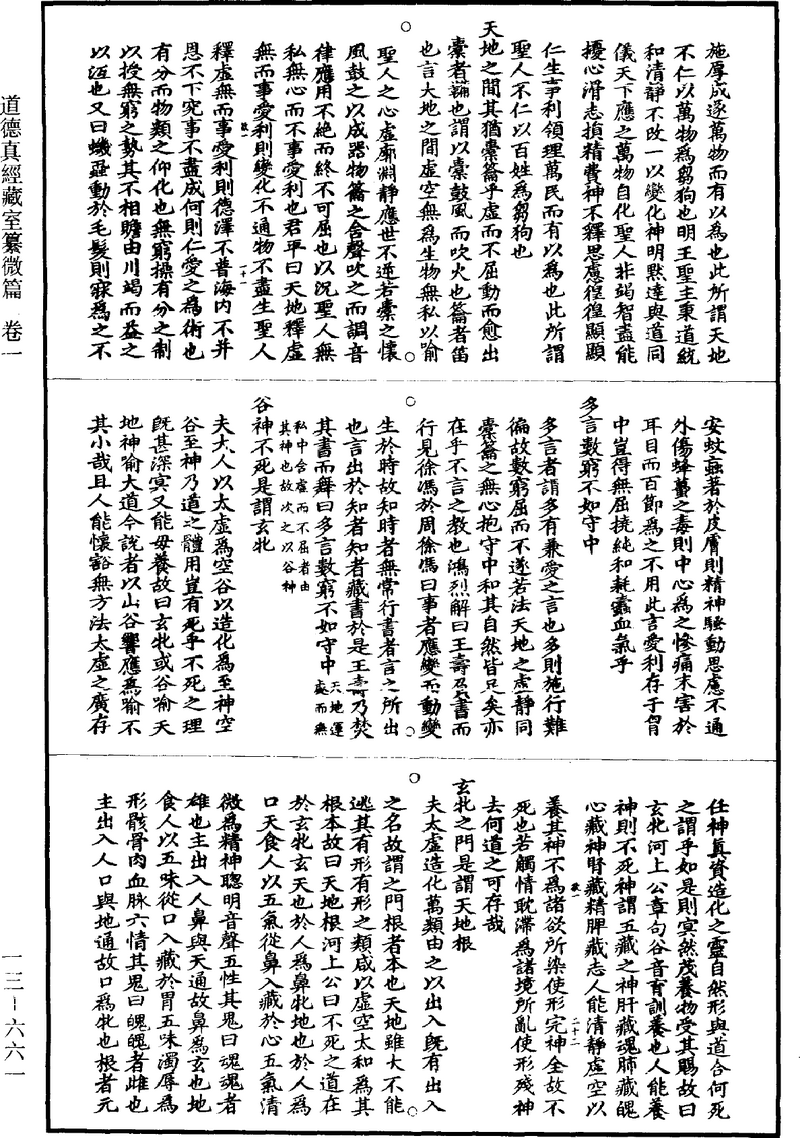 道德真經藏室纂微篇 卷一
施厚成遂萬物而有以為也此所謂天地
不仁以萬物為芻狗也明王聖主秉道統
和清靜不改一以變化神明默達與道同
儀天下應之萬物自化聖人非竭智盡能
擾心滑志損精費神不釋思慮徨徨顯顯
仁生事利領理萬民而有以為也此所謂
聖人不仁以百姓為芻狗也
天地之間其猶橐籥乎虛而不屈動而愈出
橐者鞴也謂以橐鼓風而吹火也籥者笛
也言大地之間虛空無為生物無私以喻
聖人之心虛廓淵靜應世不逆若橐之懷
風鼓之以成器物籥之含聲吹之而調音
律應用不絕而終不可屈也以況聖人無
私無心而不事愛利也君平曰天地釋虛
無而事愛利則變化不通物不盡生聖人
釋虛無而事愛利則德澤不普海內不并
恩不下究事不盡成何則仁愛之為術也
有分而物類之仰化也無窮操有分之制
以授無窮之勢其不相贍由川竭而益之
以泣也又曰蟣蝨動於毛髮則寐為之不
安蚊䖟著於皮膚則精神騷動思慮不通
外傷蜂蠆之毒則中心為之慘痛末害於
耳目而百節為之不用此言愛利存于胷
中豈得無屈撓純和耗蠹血氣乎
多言數窮不如守中
多言者謂多有兼愛之言也多則施行難
徧故數窮屈而不遂若法天地之虛靜同
橐籥之無心抱守中和其自然皆足矣亦
在乎不言之教也鴻烈解曰王壽負書而
行見徐馮於周徐馮曰事者應變而動變
生於時故知時者無常行書者言之所出
也言出於知者知者藏書於是王壽乃焚
其書而舞曰多言數窮不如守中天地運處而無
私中含虛而不屈者由其神也故次之以谷神
谷神不死是謂玄牝
夫大人以太虛為空谷以造化為至神空
谷至神乃道之體用豈有死乎不死之理
既甚深冥又能母養故曰玄牝或谷喻天
地神喻大道今說者以山谷響應為喻不
其小哉且人能懷豁無方法太虛之廣存
任神真資造化之靈自然形與道合何死
之謂乎如是則冥然茂養物受其賜故曰
玄牝河上公章句谷音育訓養也人能養
神則不死神謂五藏之神肝藏魂肺藏魄
心藏神腎藏精脾藏志人能清靜虛空以
養其神不為諸欲所染使形完神全故不
死也若觸情耽滯為諸境所亂使形殘神
去何道之可存哉
玄牝之門是謂天地根
夫太虛造化萬類由之以出入既有出入
之名故謂之門根者本也天地雖大不能
逃其有形有形之類咸以虛空太和為其
根本故曰天地根河上公曰不死之道在
於玄牝玄天也於人為鼻牝地也於人為
口天食人以五氣從鼻入藏於心五氣清
微為精神聰明音聲五性其鬼曰魂魂者
雄也主出入人鼻與天通故鼻為玄也地
食人以五味從口入藏於胃五味濁辱為
形骸骨肉血脉六情其鬼曰魄魄者雌也
主出入人口與地通故口為牝也根者元
一三—六六一